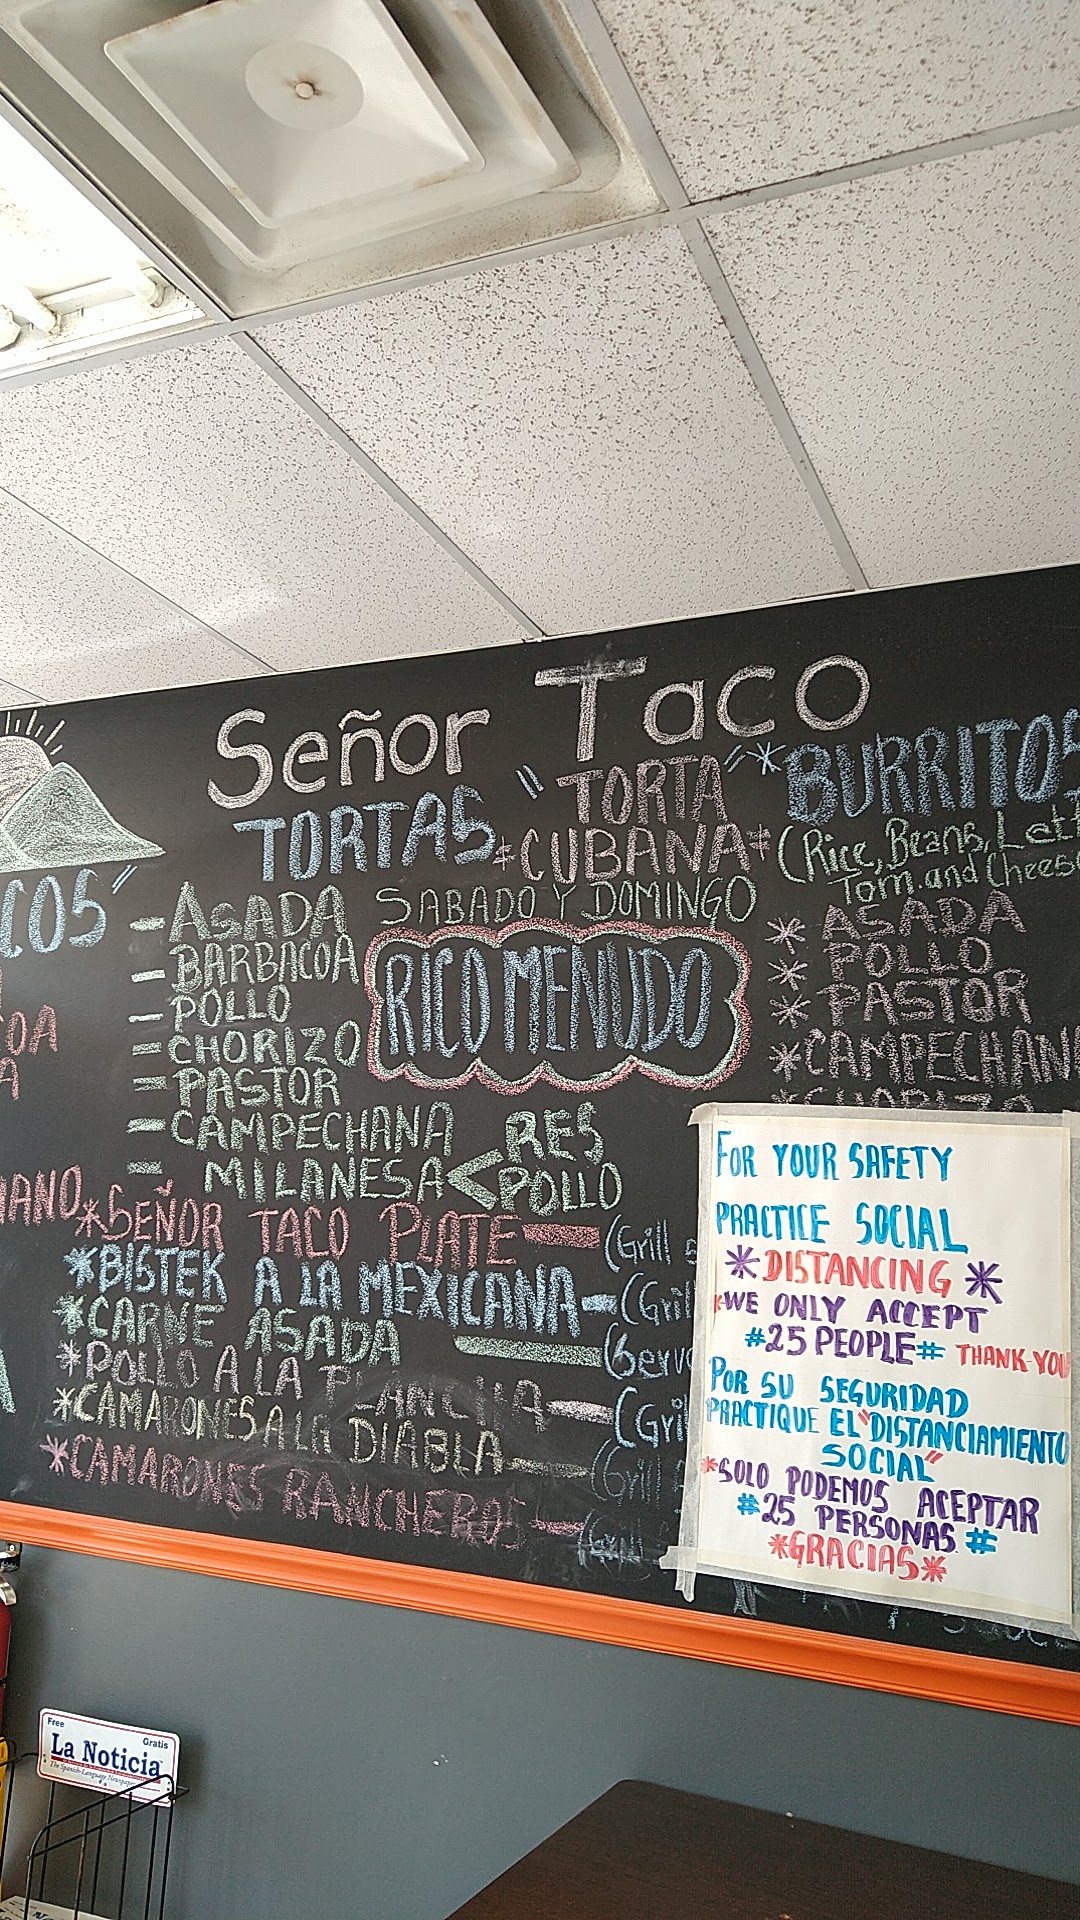 Señor Taco
TORTAS
"TORTA"
*CUBANA*
*BURRITOS
(Rice, Beans, Lett
Tom. and Cheese
COS"
- ASADA
- BARBACOA
- POLLO
- CHORIZO
- PASTOR
- CAMPECHANA
- MILANESA < RES
POLLO
SABADO Y DOMINGO
RICO MENUDO
* ASADA
* POLLO
* PASTOR
* CAMPECHANA
* CHORIZO
OA
A
IANO
*SEÑOR TACO PLATE - (Grill
*BISTEK A LA MEXICANA - (Gril
*CARNE ASADA - (Serve
*POLLO A LA PLANCHA - (Gril
*CAMARONES A LA DIABLA - (Grill
*CAMARONES RANCHEROS -
FOR YOUR SAFETY
PRACTICE SOCIAL
* DISTANCING *
*WE ONLY ACCEPT
#25 PEOPLE# THANK YOU
POR SU SEGURIDAD
PRACTIQUE EL "DISTANCIAMIENTO
SOCIAL"
*SOLO PODEMOS ACEPTAR
#25 PERSONAS #
*GRACIAS*
Free
Gratis
La Noticia
The Spanish-Language Newspaper